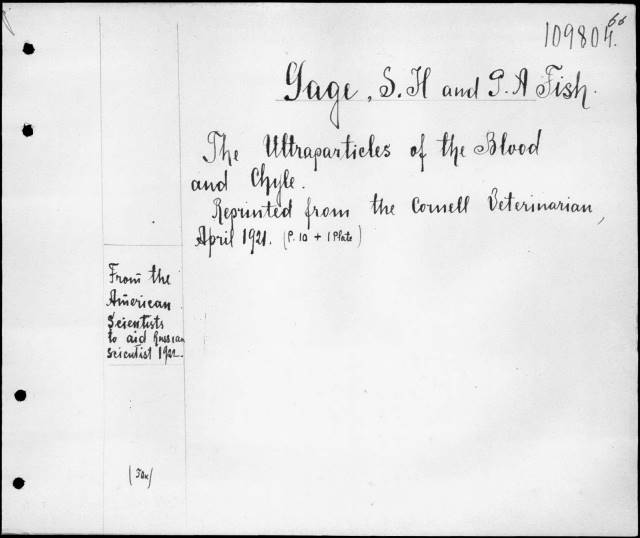 66
109804.
Gage, S. H and P. A Fish.
The Ultraparticles of the Blood
and Chyle.
Reprinted from the Cornell Veterinarian,
April 1921. (P. 10 + 1 Plate)
From the
American
Scientists
to aid Russian
scientist 1922.